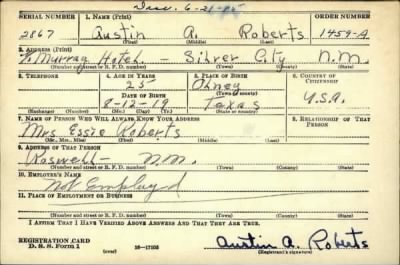 Disc. 6-21-45
SERIAL NUMBER 1. NAME (Print) ORDER NUMBER
2867 Austin A. Roberts 1459-A
(First) (Middle) (Last)
2. ADDRESS (Print)
Murray Hotel - Silver City N.M.
(Number and street or R. F. D. number) (Town) (County) (State)
3. TELEPHONE 4. AGE IN YEARS 5. PLACE OF BIRTH 6. COUNTRY OF CITIZENSHIP
25 Olney
DATE OF BIRTH (Town or county)
8-12-19 Texas U.S.A.
(Exchange) (No.) (Mo.) (Day) (Yr.) (State or country)
7. NAME OF PERSON WHO WILL ALWAYS KNOW YOUR ADDRESS 8. RELATIONSHIP OF THAT PERSON
Mrs Essie Roberts
(Mr., Mrs., Miss) (First) (Middle) (Last)
9. ADDRESS OF THAT PERSON
Roswell - N.M.
(Number and street or R. F. D. number) (Town) (County) (State)
10. EMPLOYER'S NAME
Not Employed
11. PLACE OF EMPLOYMENT OR BUSINESS
(Number and street or R. F. D. number) (Town) (County) (State)
I AFFIRM THAT I HAVE VERIFIED ABOVE ANSWERS AND THAT THEY ARE TRUE.
REGISTRATION CARD
D. S. S. FORM 1 16-17105 Austin A. Roberts
(over) (Registrant's signature)